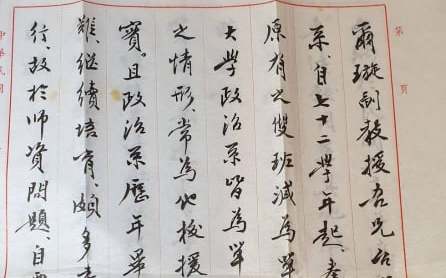 第 頁
爾璇副教授吾兄台
系、自七十二學年起、奉
原有之雙班減為單
大學政治系皆為單
之情形、常為他校援
實、且政治系歷年畢
難、繼續培育、頗多
行、故於師資問題、自
中華民國